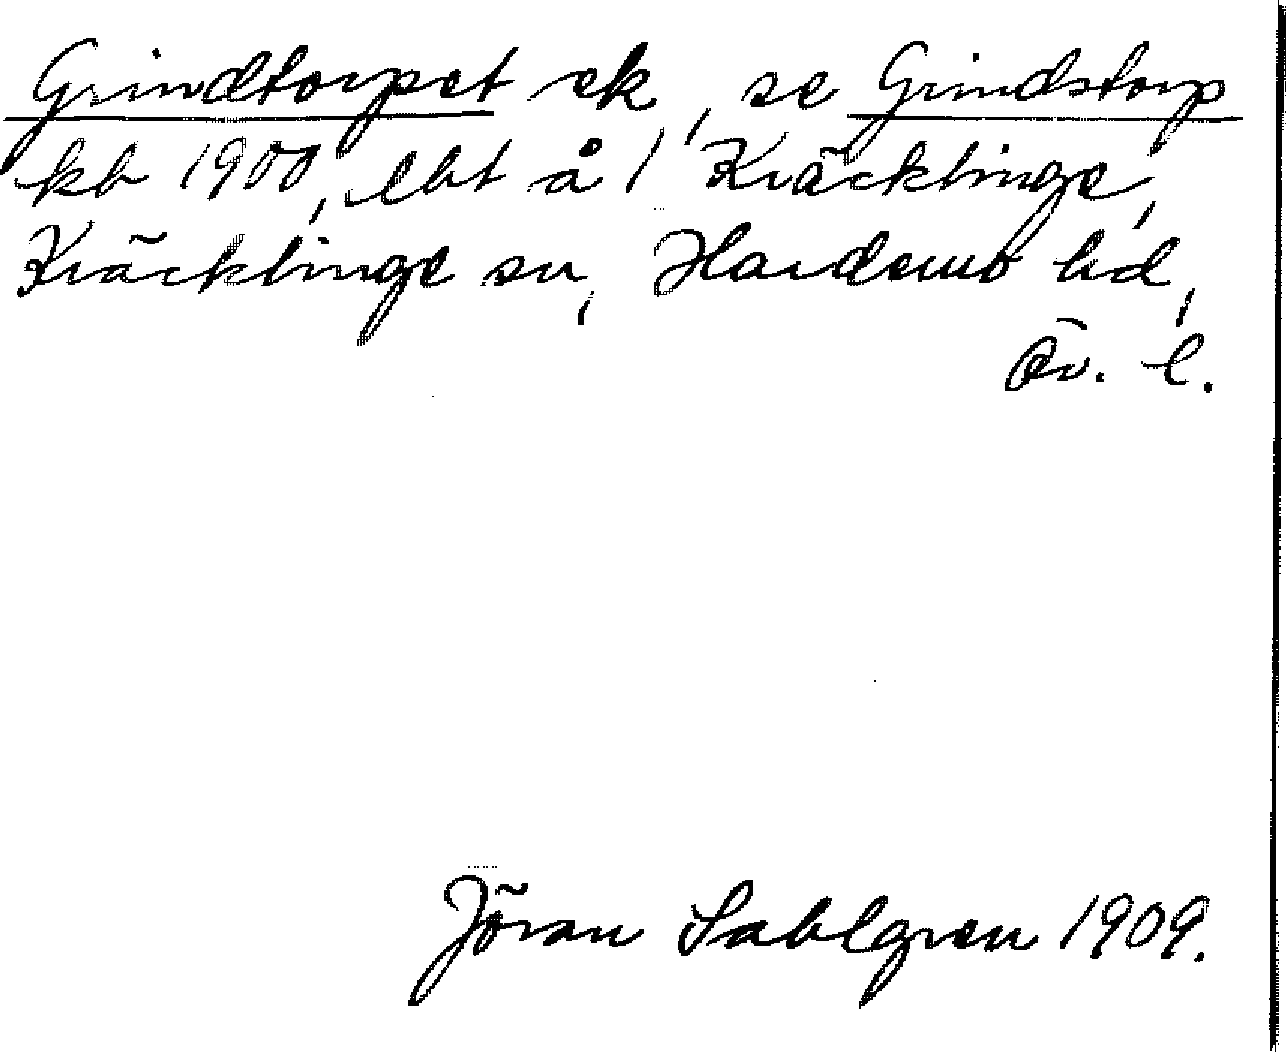 Grindtorpet ek, se Grindstorp
kb 1900, lht å 1 Kräcklinge,
Kräcklinge sn, Hardemo hd,
Ör. l.
Jöran Sahlgren 1909.